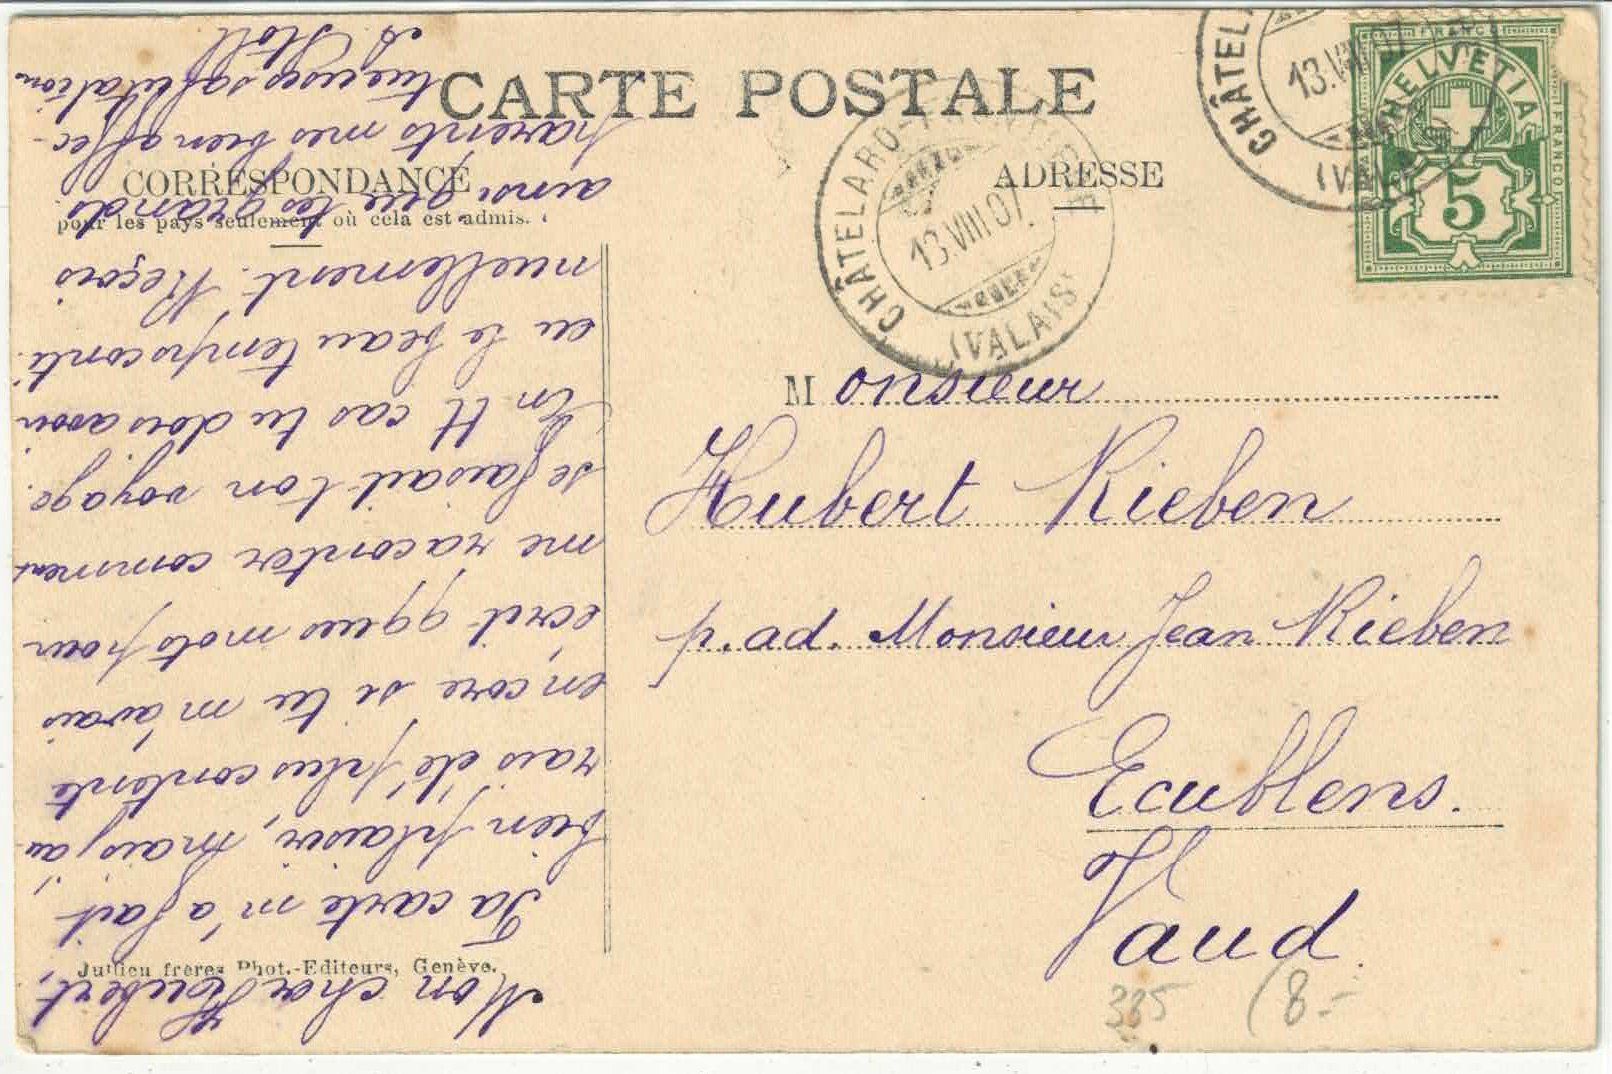 CARTE POSTALE
CORRESPONDANCE
pour les pays seulement où cela est admis.
ADRESSE
CHÂTELARD-
13.VIII.07.
(VALAIS)
CHÂTEL
13.VIII.07
(VALA
FRANCO
HELVETIA
FRANCO
5
Monsieur
Hubert Rieben
p. ad. Monsieur Jean Rieben
Ecublens.
Vaud
335 (8.-
Jullien frères Phot.-Editeurs, Genève.
Mon cher Hubert,
Ta carte m'a fait
bien plaisir, mais j'au
rais été plus contente
encore si tu m'avais
écrit qques mots pour
me raconter comment
se faisait ton voyage.
En tt cas tu dois avoir
eu le beau temps conti
nuellement. Reçois
ainsi que tes grands-
parents mes bien affec-
tueuses salutation
Stoll